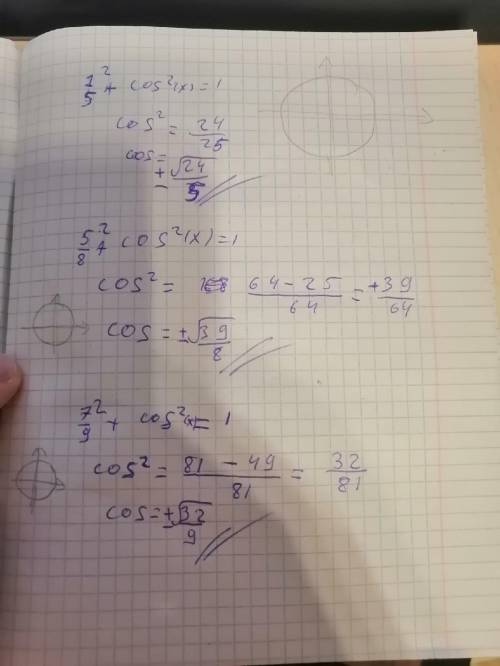 1/5² + cos²(x) = 1
cos² = 24/25
cos = ± √24/5
5/8² + cos²(x) = 1
cos² = 64-25/64 = +39/64
cos = ± √39/8
7/9² + cos²(x) = 1
cos² = 81-49/81 = 32/81
cos = ± √32/9